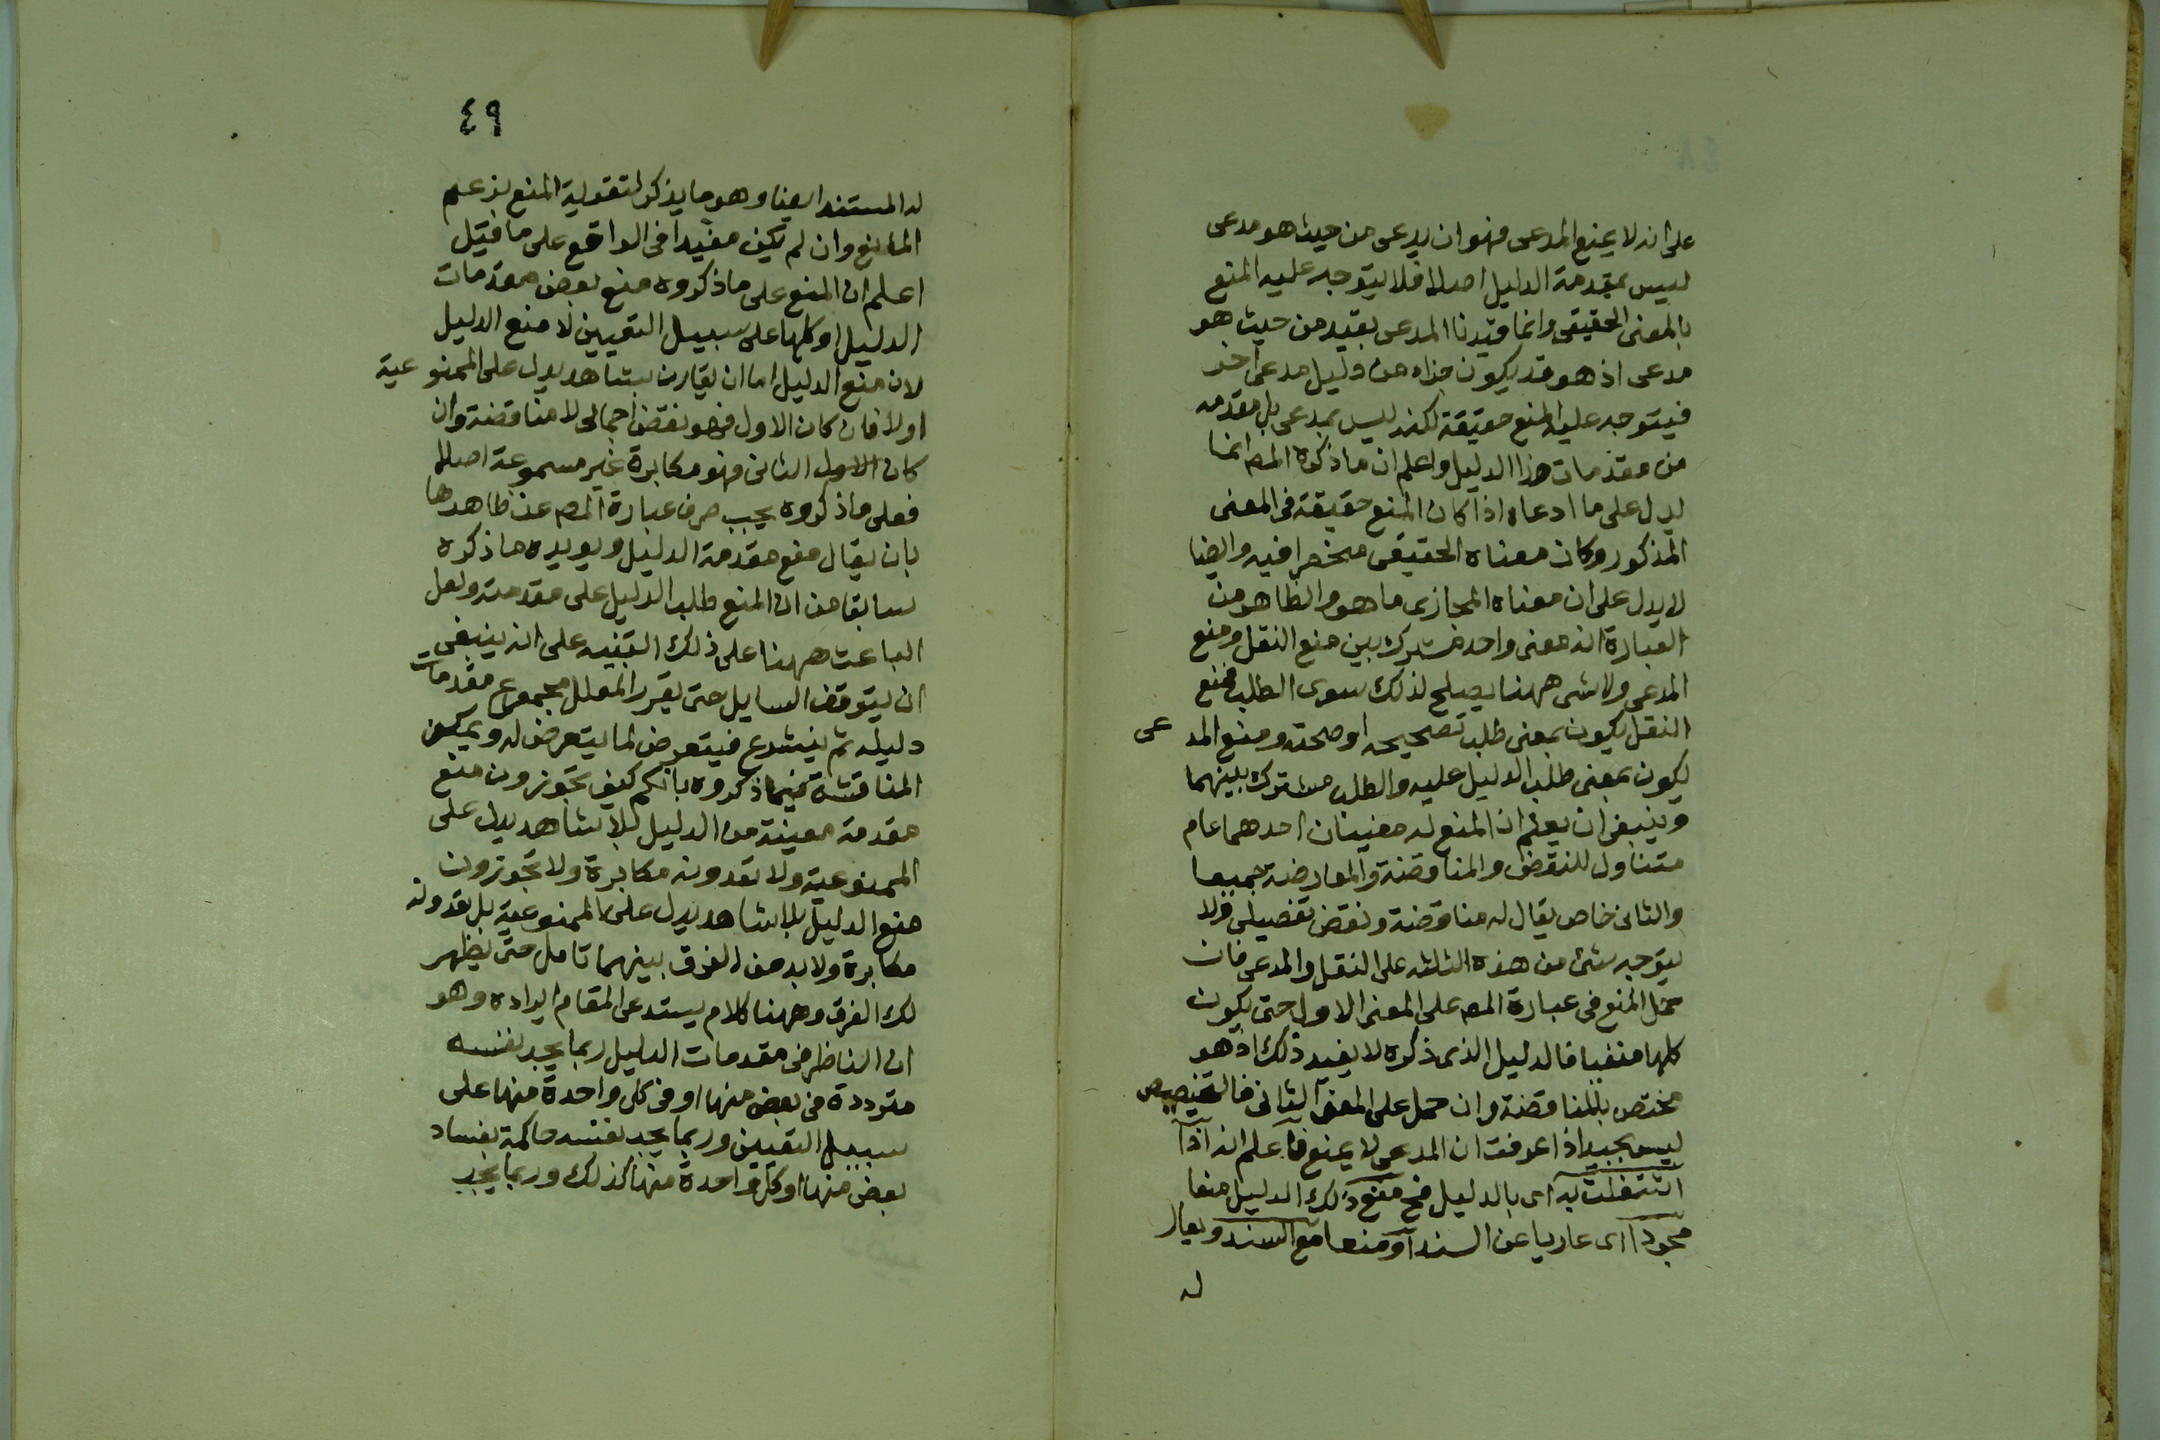 على انه لا يمنع المدعى فهو ان يدعى من حيث هو مدعى
ليس بمقدمة الدليل اصلا فلا يتوجه عليه المنع
بالمعنى الحقيقى وانما قيدنا المدعى بقيد من حيث هو
مدعى اذ هو قد يكون جزاء من دليل مدعى اخر
فيتوجه عليه المنع حقيقة لكنه ليس بمدعى بل مقدمه
من مقدمات هذا الدليل واعلم ان ما ذكره المص انما
يدل على ما ادعاه اذا كان المنع حقيقة فى المعنى
المذكور وكان معناه الحقيقى منحصرا فيه وايضا
لا يدل على ان معناه المجازى ما هو والظاهر من
العبارة انه معنى واحد مشترك بين منع النقل ومنع
المدعى ولا شى ههنا يصلح لذلك سوى الطلب فمنع
النقل يكون بمعنى طلب تصحيحه او صحته ومنع المدعى
يكون بمعنى طلب الدليل عليه والطلب مشترك بينهما
وينبغى ان يعلم ان المنع له معنيان احدهما عام
متناول للنقض والمناقضة والمعارضة جميعا
والثانى خاص يقال له مناقضة ونقض تفصيلى ولا
يتوجه شئ من هذه الثلثه على النقل والمدعى فان
حمل المنع فى عبارة المص على المعنى الاول حتى يكون
كلها منفيا فالدليل الذى ذكره لا يفيد ذلك اذ هو
مختص بالمناقضة وان حمل على المعنى الثانى فالتخصيص
ليس بجيد اذا عرفت ان المدعى لا يمنع فاعلم انه اذا
اشتغلت به اى بالدليل فح منع ذلك الدليل منعا
مجردا اى عاريا عن السند او منعا مع السند ويقال
له
٤٩
له المستند ايضا وهو ما يذكر لتقوية المنع بزعم
المانع وان لم يكن مفيدا فى الواقع على ما قيل
اعلم ان المنع على ما ذكروه منع بعض مقدمات
الدليل او كلها على سبيل التعيين لا منع الدليل
لان منع الدليل اما ان يقارن بشاهد يدل على الممنوعية
اولا فان كان الاول فهو نقض اجمالى لا مناقضة وان
كان الاول الثانى فهو مكابرة غير مسموعة اصلا
فعلى ما ذكروه يجب صرف عبارة المص عن ظاهرها
بان يقال منع مقدمة الدليل ويويده ما ذكره
سابقا من ان المنع طلب الدليل على مقدمته ولعل
الباعث ههنا على ذلك التنبيه على انه ينبغى
ان يتوقف السايل حتى يقرر المعلل مجموع مقدمات
دليله ثم يشرع فيتعرض لما يتعرض له ويمكن
المناقشة فيما ذكروه بانكم كيف تجوزون منع
مقدمة معينة من الدليل بلا شاهد يدل على
الممنوعية ولا تعدونه مكابرة ولا تجوزون
منع الدليل بلا شاهد يدل على الممنوعية بل تعدونه
مكابرة ولا بد من الفرق بينهما تامل حتى يظهر
لك الفرق وههنا كلام يستدعى المقام ايراده وهو
ان الناظر فى مقدمات الدليل ربما يجد نفسه
مترددة فى بعض منها او فى كل واحدة منها على
سبيل التعيين وربما يجد نفسه حاكمة بفساد
بعض منها او كل واحدة منها كذلك وربما يجد